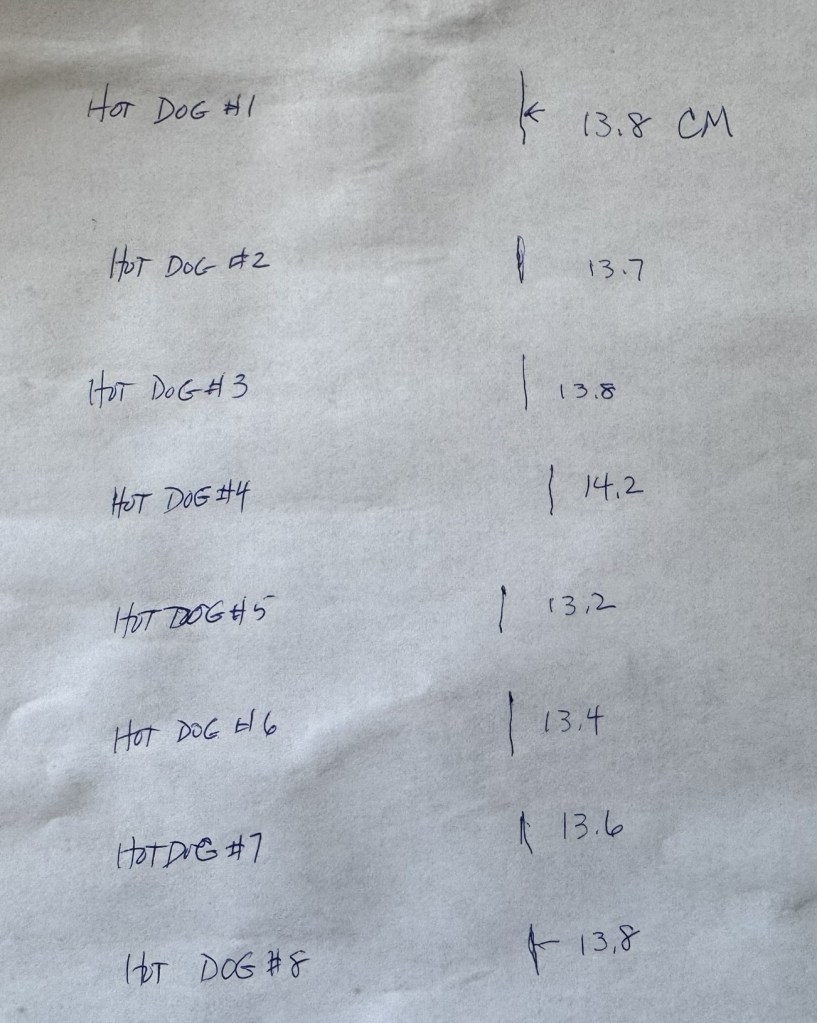 HOT DOG #1 13.8 CM
HOT DOG #2 13.7
HOT DOG #3 13.8
HOT DOG #4 14.2
HOT DOG #5 13.2
HOT DOG #6 13.4
HOT DOG #7 13.6
HOT DOG #8 13.8